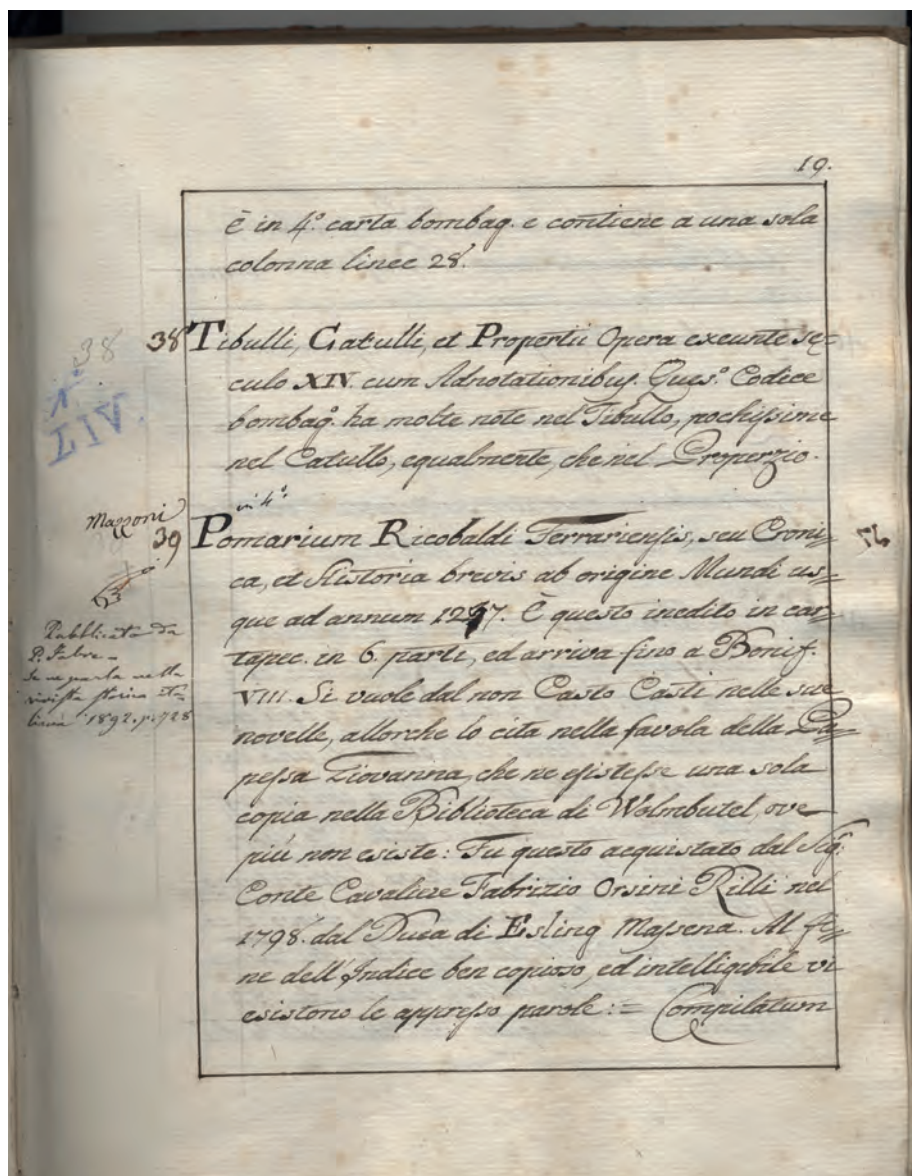 19.
è in 4.º carta bombag. e contiene a una sola
colonna linee 28.
38
N.
LIV.
38 Tibulli, Catulli, et Propertii Opera exeunte se=
culo XIV. cum Adnotationibus. Ques.º Codice
bombag.º ha molte note nel Tibullo, pochissime
nel Catullo, equalmente, che nel Properzio.
in 4.º
Mazzoni
39 Pomarium Ricobaldi Ferrariensis, seu Croni=
ca, et Historia brevis ab origine Mundi us=
que ad annum 1297. È questo inedito in car=
tapec. in 6. parti, ed arriva fino a Bonif.
VIII. Si vuole dal non Casto Casti nelle sue
novelle, allorche lo cita nella favola della Pa=
pessa Giovanna, che ne esistesse una sola
copia nella Biblioteca di Wolmbutel, ove
più non esiste: Fu questo acquistato dal Sig.
Conte Cavaliere Fabrizio Orsini Rilli nel
1798. dal Duca di Esling Massena. Al fi=
ne dell'Indice ben copioso, ed intelligibile vi
esistono le appresso parole: = Compilatum
Pubblicata da
P. Fabre -
Se ne parla nella
rivista storica ita=
liana 1892. p. 728